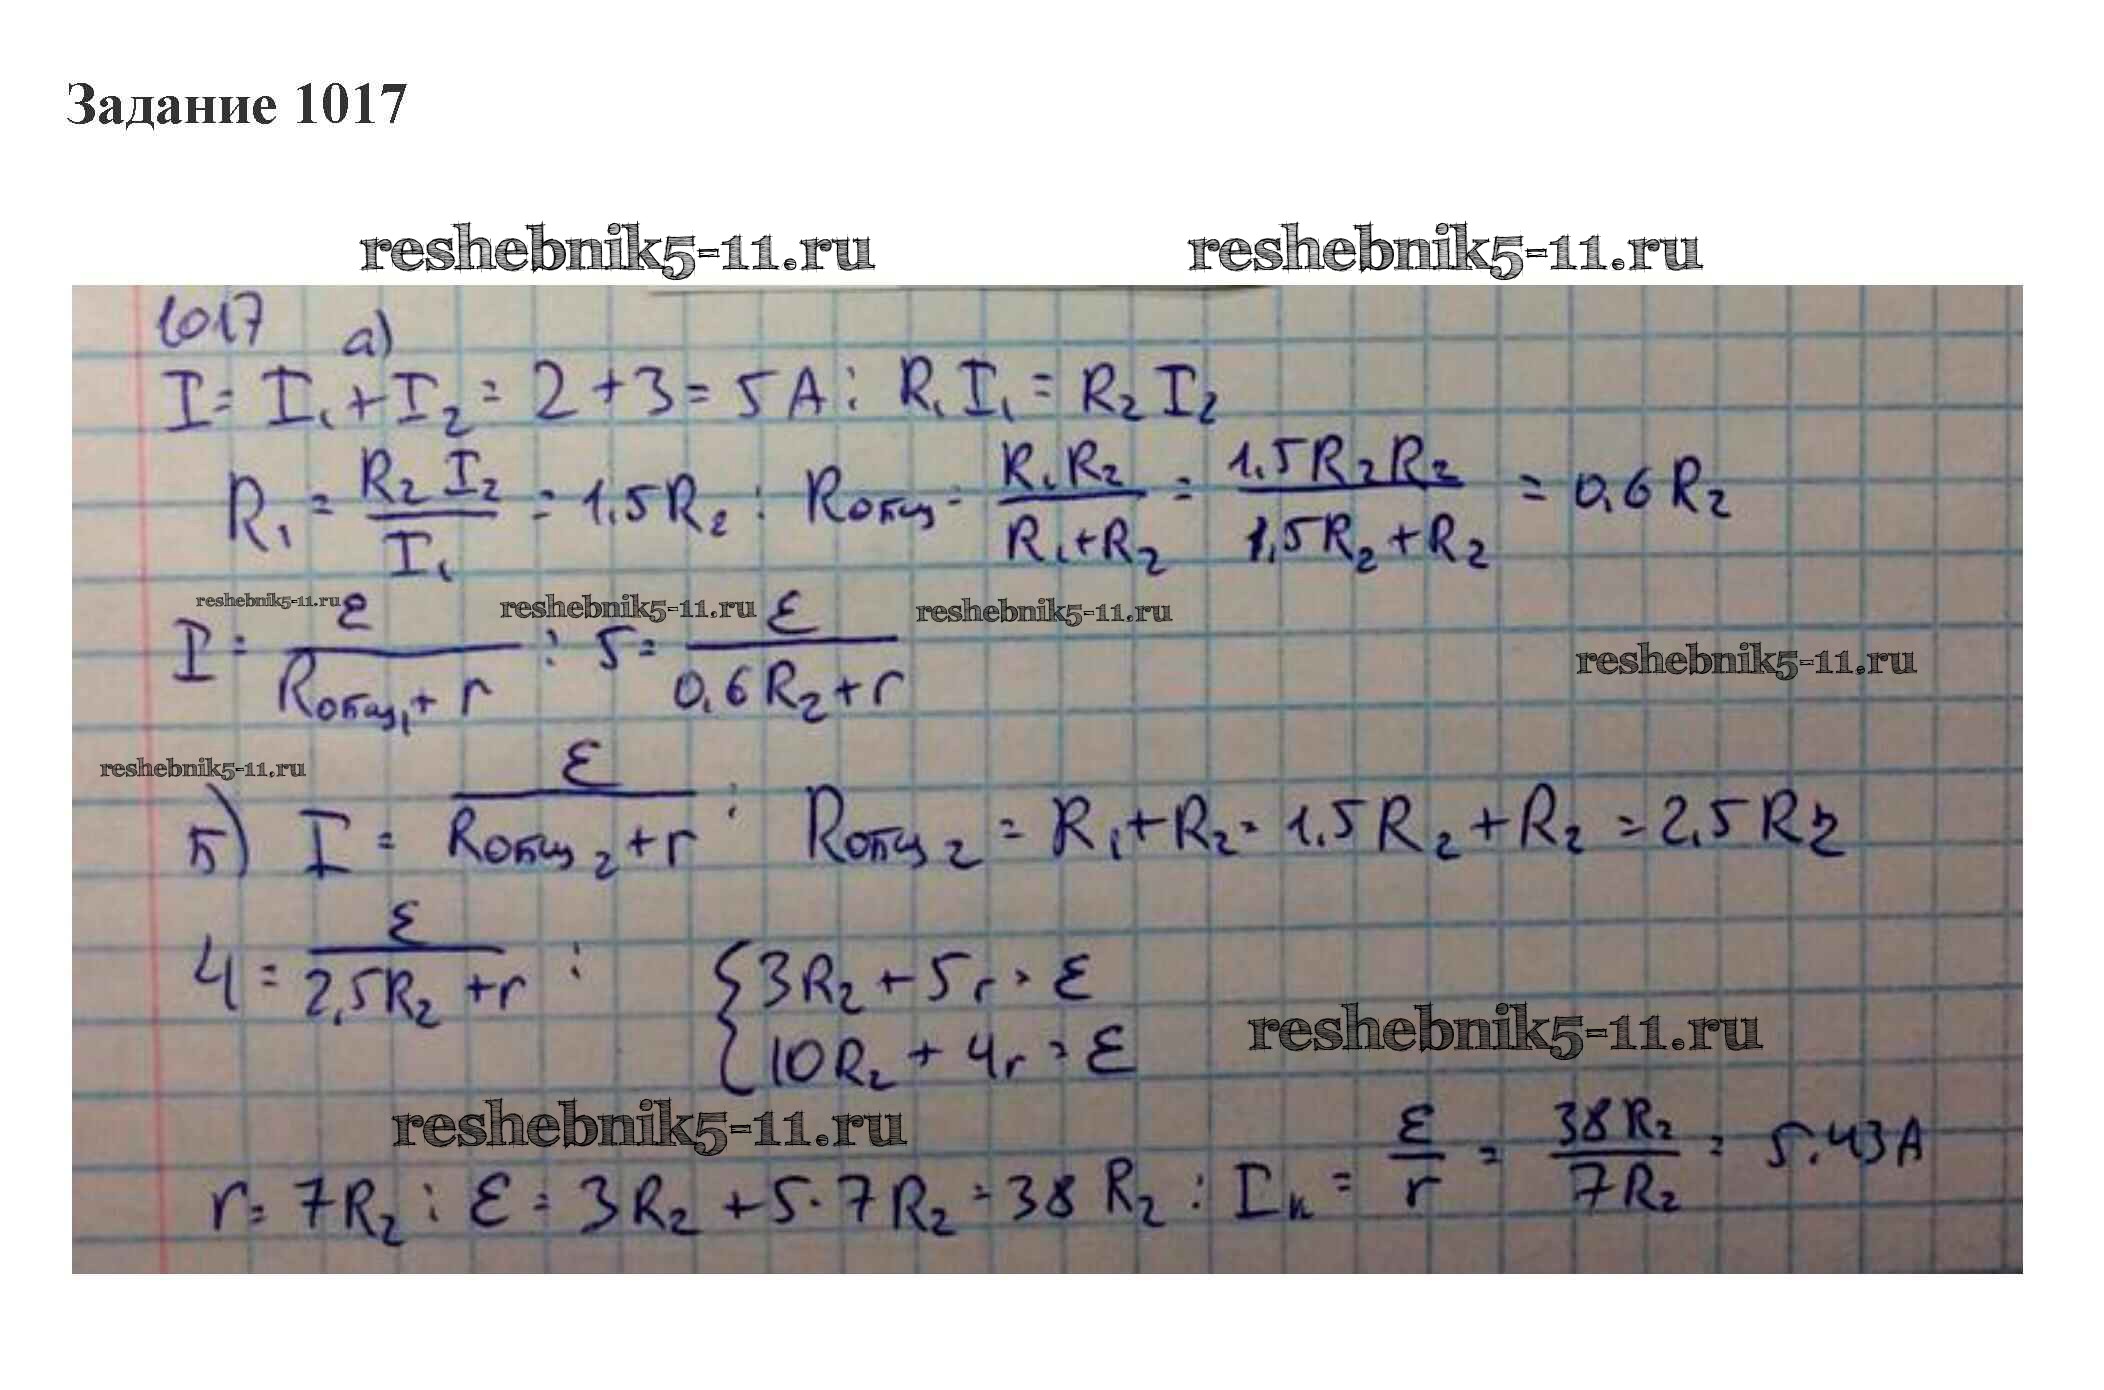 Задание 1017
reshebnik5-11.ru reshebnik5-11.ru
1017 а)
I = I₁ + I₂ = 2 + 3 = 5 А ; R₁ I₁ = R₂ I₂
R₁ = R₂ I₂ / I₁ = 1,5 R₂ ; Rобщ = R₁R₂ / R₁+R₂ = 1,5R₂R₂ / 1,5R₂+R₂ = 0,6 R₂
reshebnik5-11.ru reshebnik5-11.ru reshebnik5-11.ru
I = ε / Rобщ₁ + r ; 5 = ε / 0,6 R₂ + r
reshebnik5-11.ru
reshebnik5-11.ru
б) I = ε / Rобщ₂ + r ; Rобщ₂ = R₁ + R₂ = 1,5 R₂ + R₂ = 2,5 R₂
4 = ε / 2,5R₂ + r ; { 3R₂ + 5r = ε
10R₂ + 4r = ε
reshebnik5-11.ru
reshebnik5-11.ru
r = 7R₂ ; ε = 3R₂ + 5·7R₂ = 38 R₂ ; Iк = ε / r = 38R₂ / 7R₂ = 5.43 А